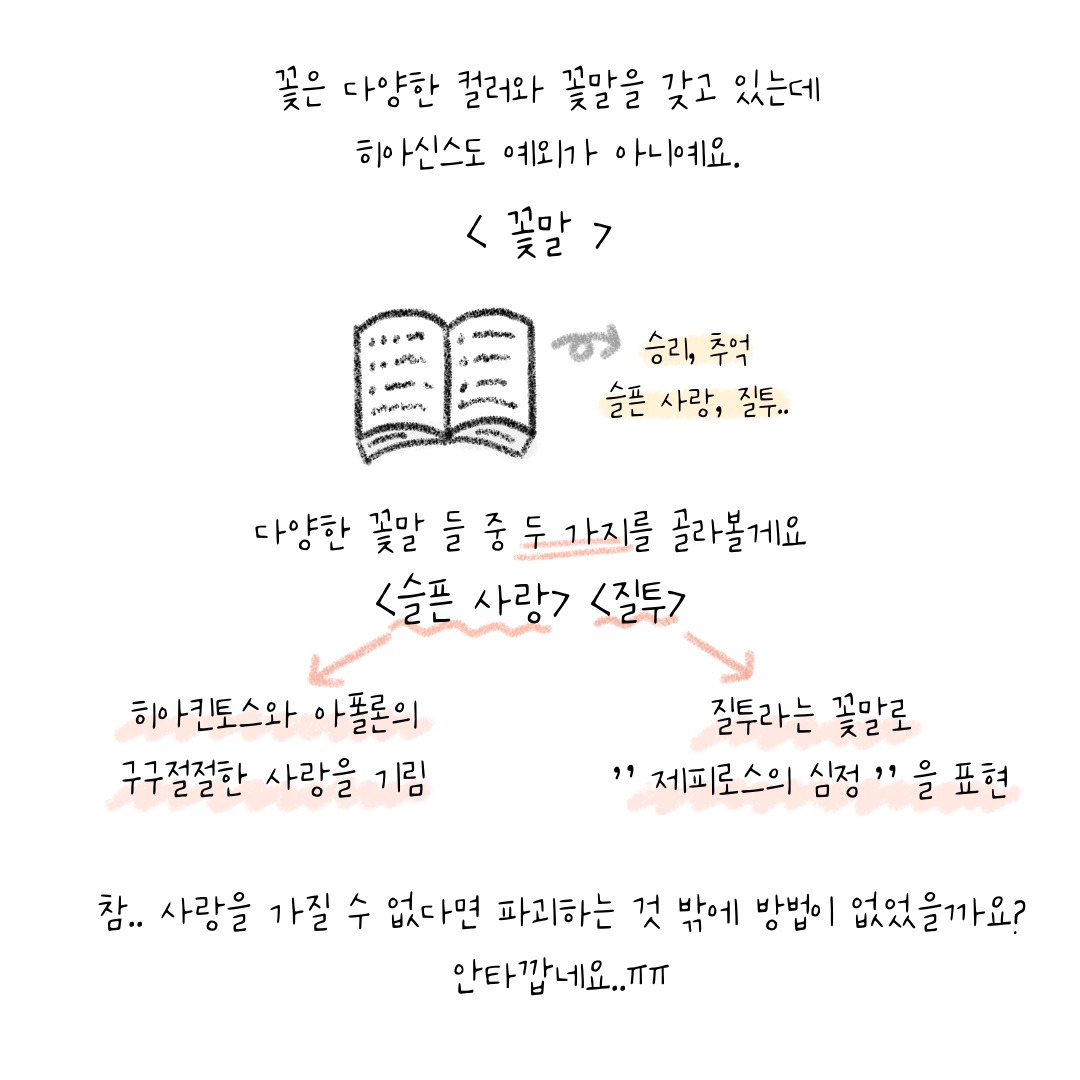 꽃은 다양한 컬러와 꽃말을 갖고 있는데
히아신스도 예외가 아니예요.
< 꽃말 >
승리, 추억
슬픈 사랑, 질투..
다양한 꽃말 들 중 두 가지를 골라볼게요
<슬픈 사랑> <질투>
히아킨토스와 아폴론의
구구절절한 사랑을 기림
질투라는 꽃말로
” 제피로스의 심정 ” 을 표현
참.. 사랑을 가질 수 없다면 파괴하는 것 밖에 방법이 없었을까요?
안타깝네요..ㅠㅠ